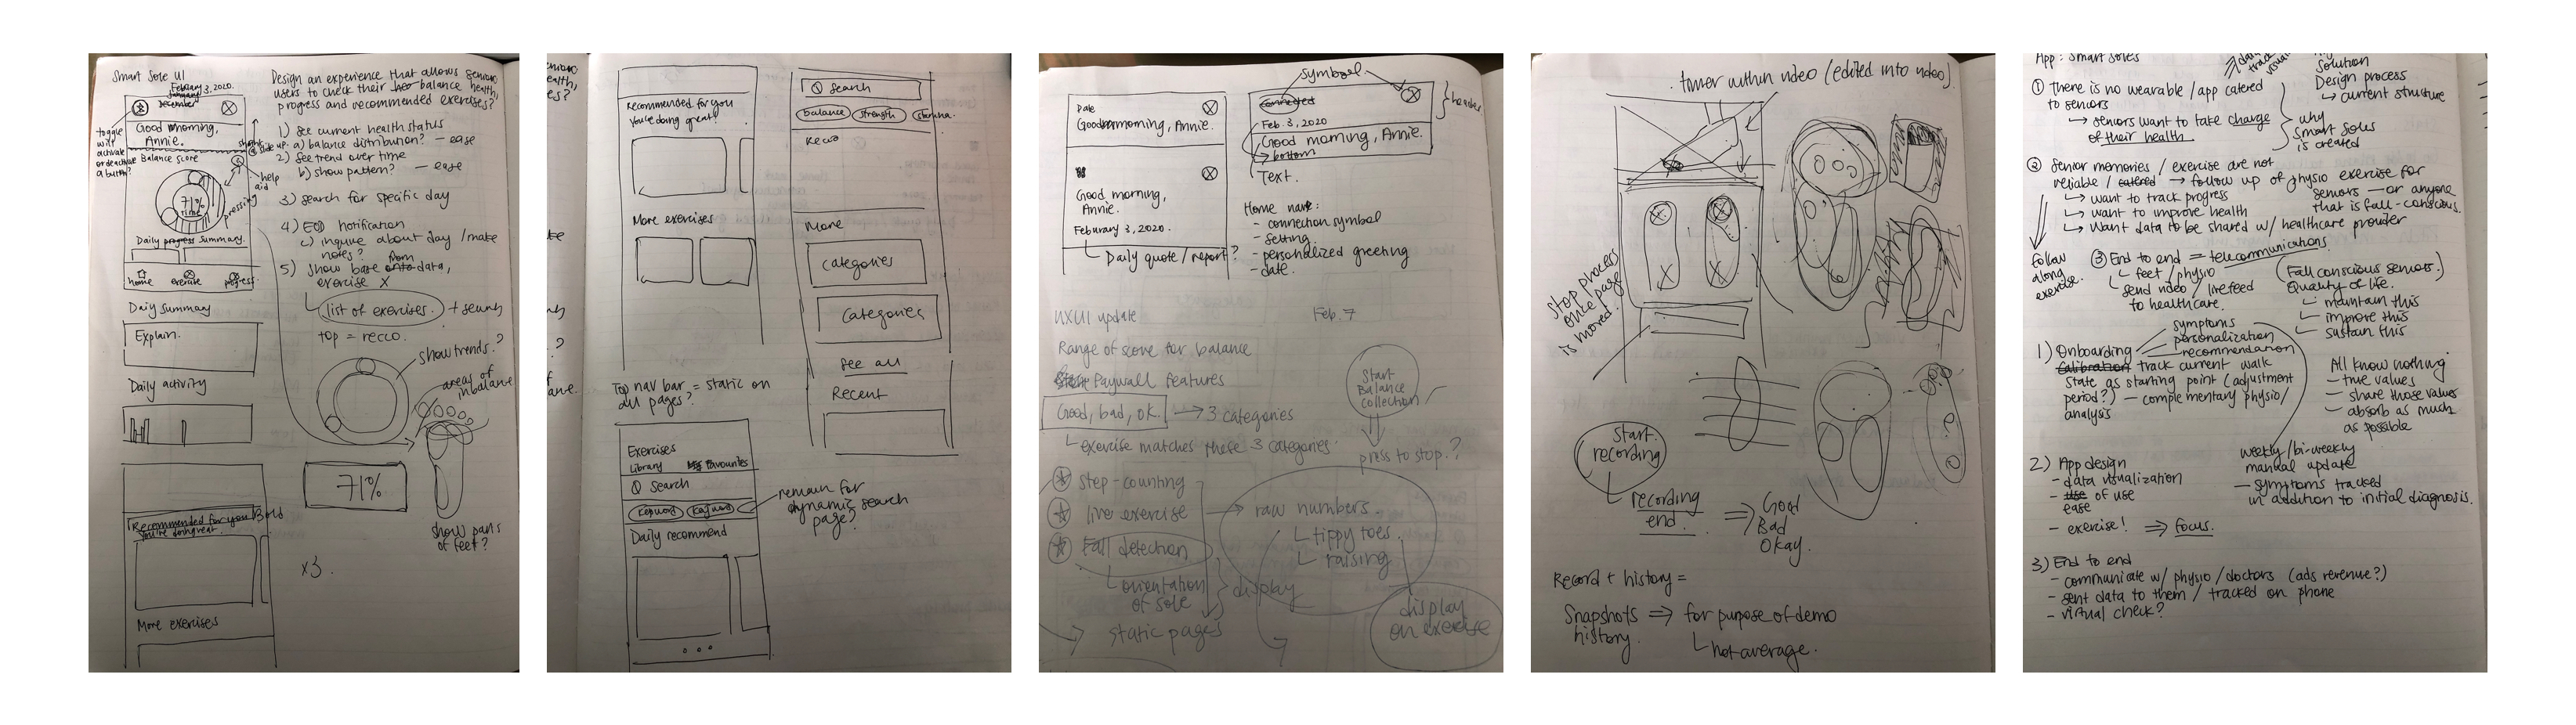 Smart Sole UI
February 3, 2020.
December
Good morning,
Annie.
toggle
will
activate
or deactivate
a button?
Balance score
71%
time
pressing
help
aid
Daily progress summary.
home exercise progress
Daily summary
Explain.
Daily activity
Recommended for you Bold
You're doing great!
More exercises
Design an experience that allows seniors
users to check their balance health,
progress and recommended exercises?
1) see current health status
a) balance distribution? — ease
2) see trend over time
b) show pattern? — ease
3) search for specific day
4) EOD notification
c) inquire about day / make
notes?
5) show base from data,
exercise X
list of exercises. + search
top = recco.
show trends?
areas of
inbalance
71%
show parts
of feet?
x3.
Recommended for you
You're doing great!
More exercises
Top nav bar = static on
all pages?
Exercises
Library Favourites
Search
Keyword Keyword
Daily recommend
remain for
dynamic search
page?
Search
balance strength stamina
Recco
More
categories
categories
see all
Recent
symbol
Date
Good morning, Annie.
Good morning,
Annie.
Feburary 3, 2020.
Daily quote / report?
connected
Feb. 3, 2020
Good morning, Annie.
bottom
Text.
header
Home nav:
- connection symbol
- setting.
- personalized greeting
- date.
UXUI update Feb. 7
Range of score for balance
Paywall features
Good, bad, ok. → 3 categories
exercise matches these 3 categories.
Start
Balance
collection
press to stop?
step-counting
live exercise → raw numbers.
tippy toes
raising
Fall detection
orientation
of sole
display
static pages
display
on exercise
timer within video (edited into video).
stop process
once page
is moved.
start
recording
recording
end. ⇒ Good
Bad
Okay.
Record + history =
Snapshots ⇒ for purpose of demo
history. not average.
App: Smart Soles
① There is no wearable / app catered
to seniors
↳ seniors want to take charge
of their health
why
Smart Soles
is created
Solution
Design process
↳ current structure
② Senior memories / exercise are not
reliable / catered → follow up of physio exercise for
seniors — or anyone
that is fall-conscious.
↳ want to track progress
↳ want to improve health
↳ Want data to be shared w/ healthcare provider
Follow
along
exercise.
③ End to end = telecommunications
↳ feet / physio
send video / livefeed
to healthcare.
(Fall conscious seniors.)
Quality of life.
- maintain this
- improve this
- sustain this
symptoms
personalization
recommendation
1) Onboarding
Calibration track current walk
state as starting point (adjustment
period?) — complementary physio/
analysis
All know nothing
- true values
- share those values
- absorb as much
as possible
weekly/bi-weekly
manual update
- symptoms tracked
in addition to initial diagnosis.
2) App design
- data visualization
- use of use
ease
- exercise! ⇒ focus.
3) End to end
- communicate w/ physio / doctors (ads revenue?)
- sent data to them / tracked on phone
- virtual check?